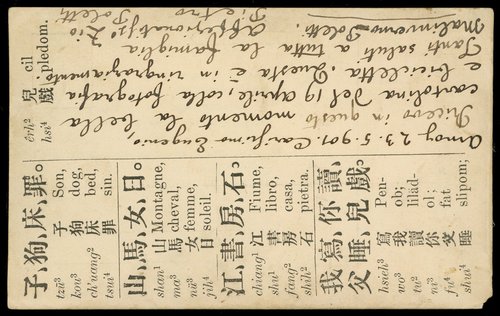 子、狗、床、罪。
Son,
dog,
bed,
sin.
子
狗
床
罪
tzŭ³
kou³
ch'uang²
tsui⁴
山、馬、女、日。
Montagne,
cheval,
femme,
soleil.
山
馬
女
日
shan¹
ma³
nü³
jih⁴
江、書、房、石。
Fiume,
libro,
casa,
pietra.
江
書
房
石
chiang¹
shu¹
fang²
shih²
我寫、你讀、
父睡、兒戲。
Pen-
ob;
lilad-
ol;
fat
slipom;
寫
我
讀
你
父
睡
hsieh³
wo³
tu²
ni³
fu⁴
shui⁴
cil
pledom.
兒
戲
êrh²
hsi⁴
Amoy 23.5.901. Carissimo Eugenio,
Ricevo in questo momento la bella
cartolina del 19 Aprile, colla fotografia
e bicicletta. Questa è in ringraziamento
Tanti saluti a tutta la famiglia
Malinverno Poletti.
Zio
Pietro
Poletti